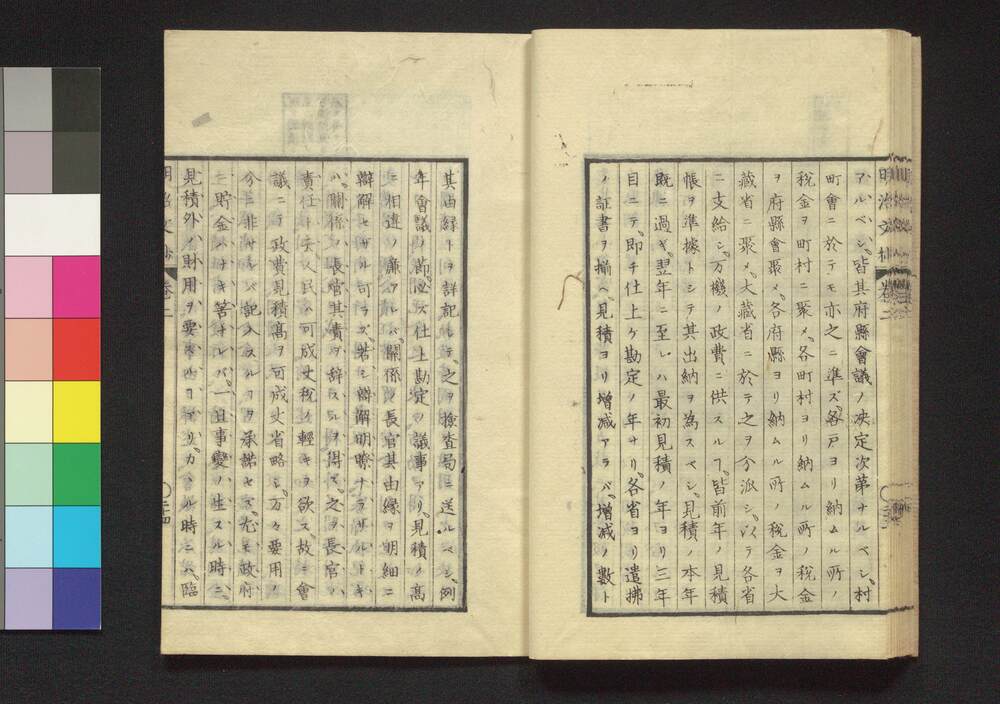 アルベシ、皆其府縣會議ノ决定次第ナルベシ、村
町會ニ於テモ亦之ニ準ズ、各戸ヨリ納ムル所ノ
税金ヲ町村ニ聚メ、各町村ヨリ納ムル所ノ税金
ヲ府縣會聚メ、各府縣ヨリ納ムル所ノ税金ヲ大
藏省ニ聚メ、大藏省ニ於テ之ヲ分派シ、以テ各省
ニ支給シ、万機ノ政費ニ供スルヿ、皆前年ノ見積
帳ヲ準據トシテ其出納ヲ為スベシ、見積ノ本年
既ニ過ギ、翌年ニ至レハ最初見積ノ年ヨリ三年
目ニテ、即チ仕上ケ勘定ノ年ナリ、各省ヨリ遣拂
ノ証書ヲ揃ヘ、見積ヨリ増減アラバ、増減ノ數ト
其由縁トヲ詳記シテ、之ヲ檢査局ニ送ルベシ、例
年會議ノ節、必ズ仕上勘定ノ議事アリ、見積ノ高
ニ相違ノ廉アレバ、關係ノ長官其由縁ヲ明細ニ
辯解セザル可ラズ、若シ辯解明瞭ナラザルトキ
ハ、關係ノ長官其責ヲ辞スルヲ得ズ、之ヲ長官ノ
責任ト云、人民ハ可成丈税ノ輕キヲ欲ス、故ニ會
議ニテ政費見積高ヲ可成丈省略シ、万々要用ノ
分ニ非サレバ記入スルヿヲ承諾セズ、尤モ政府
ニ貯金ハナキ筈ナレバ、一旦事變ノ生スル時ニ、
見積外ノ財用ヲ要スルヿアリ、カヽル時ニハ、臨
明治文抄 卷二